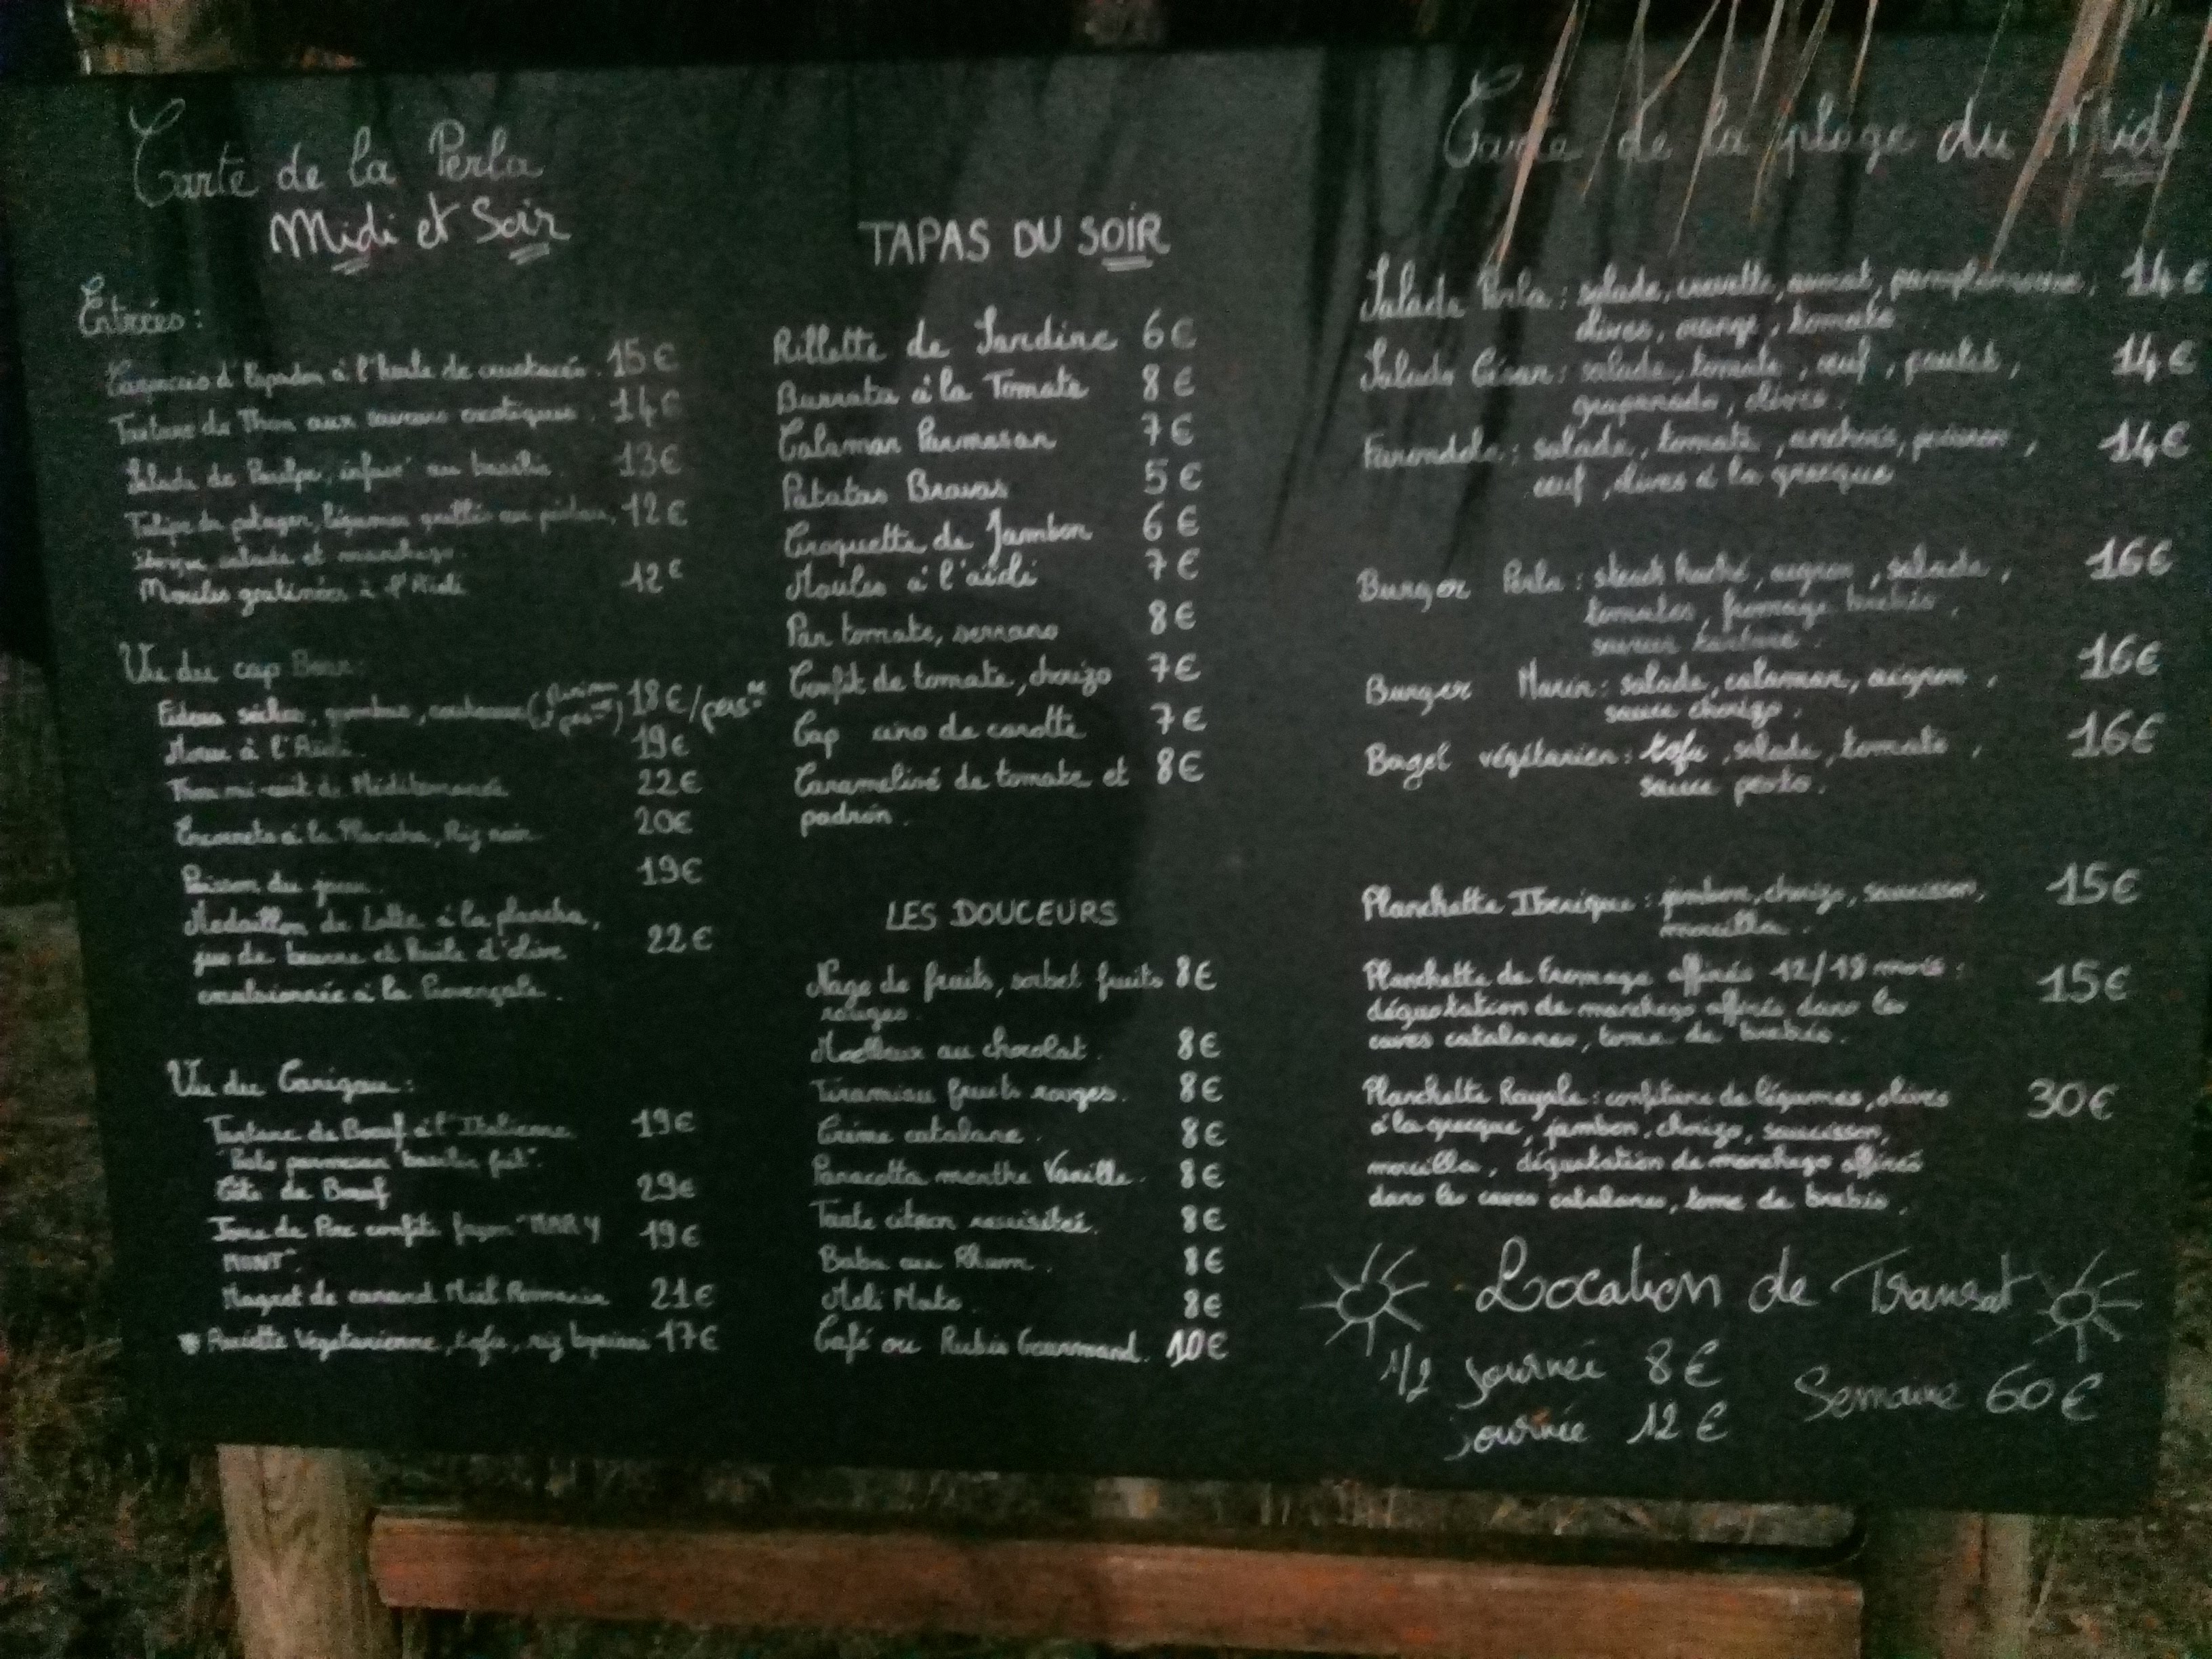 Carte de la Perla
Midi et Soir
Entrées :
à l'huile de crustacés. 15€
Tartare de Thon aux saveurs exotiques. 14€
Salade de Poulpe, infusé au basilic 13€
légumes 12€
salade et manchego.
Moules gratinées à l'Aïoli 12€
Vu du cap Bear :
18€/pers
à l'Aïoli 19€
Thon mi-cuit de Méditerranée 22€
Encornets à la Plancha, Riz noir 20€
Poisson du jour. 19€
Medaillon de Lotte à la plancha,
jus de beurre et huile d'olive 22€
emulsionnée à la Provençale.
Vu du Canigou :
Tartare de Boeuf à l'Italienne 19€
parmesan basilic
Côte de Boeuf 29€
Joue de Porc confite façon "MARY 19€
MONT".
Magret de canard Miel Romarin 21€
Assiette Végétarienne, tofu, riz 17€
TAPAS DU SOIR
Rillette de Sardine 6€
Burrata à la Tomate 8€
Calamar Parmesan 7€
Patatas Bravas 5€
Croquette de Jambon 6€
Moules à l'aïoli 7€
Pan tomate, serrano 8€
Confit de tomate, chorizo 7€
Cap uino de carotte 7€
Caramelisé de tomate et 8€
padrón.
LES DOUCEURS
Nage de fruits, sorbet fruits 8€
rouges.
Moelleux au chocolat. 8€
Tiramisu fruits rouges. 8€
Crème catalane. 8€
Panacotta menthe Vanille. 8€
Tarte citron revisitée. 8€
Baba au Rhum. 8€
Meli Melo. 8€
Café ou Rubis Gourmand. 10€
Carte de la plage du Midi
Salade Perla : salade, crevette, avocat, pamplemousse, 14€
olives, orange, tomate
Salade César : salade, tomate, oeuf, poulet, 14€
olives.
Farandole : salade, tomate, anchois, poivron, 14€
oeuf, olives à la grecque
Burger Perla : steack haché, oignon, salade, 16€
tomates, fromage brebis,
sauce tartare.
Burger Marin : salade, calamar, oignon, 16€
sauce chorizo.
Bagel végétarien : tofu, salade, tomate, 16€
sauce pesto.
Planchette Iberique : jambon, chorizo, saucisson, 15€
morcilla.
Planchette de Fromage affinés 12/18 mois : 15€
dégustation de manchego affinés dans les
caves catalanes, tome de brebis.
Planchette Royale : confiture de légumes, olives 30€
à la grecque, jambon, chorizo, saucisson,
morcilla, dégustation de manchego affinés
dans les caves catalanes, tome de brebis.
Location de Transat
1/2 journée 8€
Semaine 60€
journée 12€